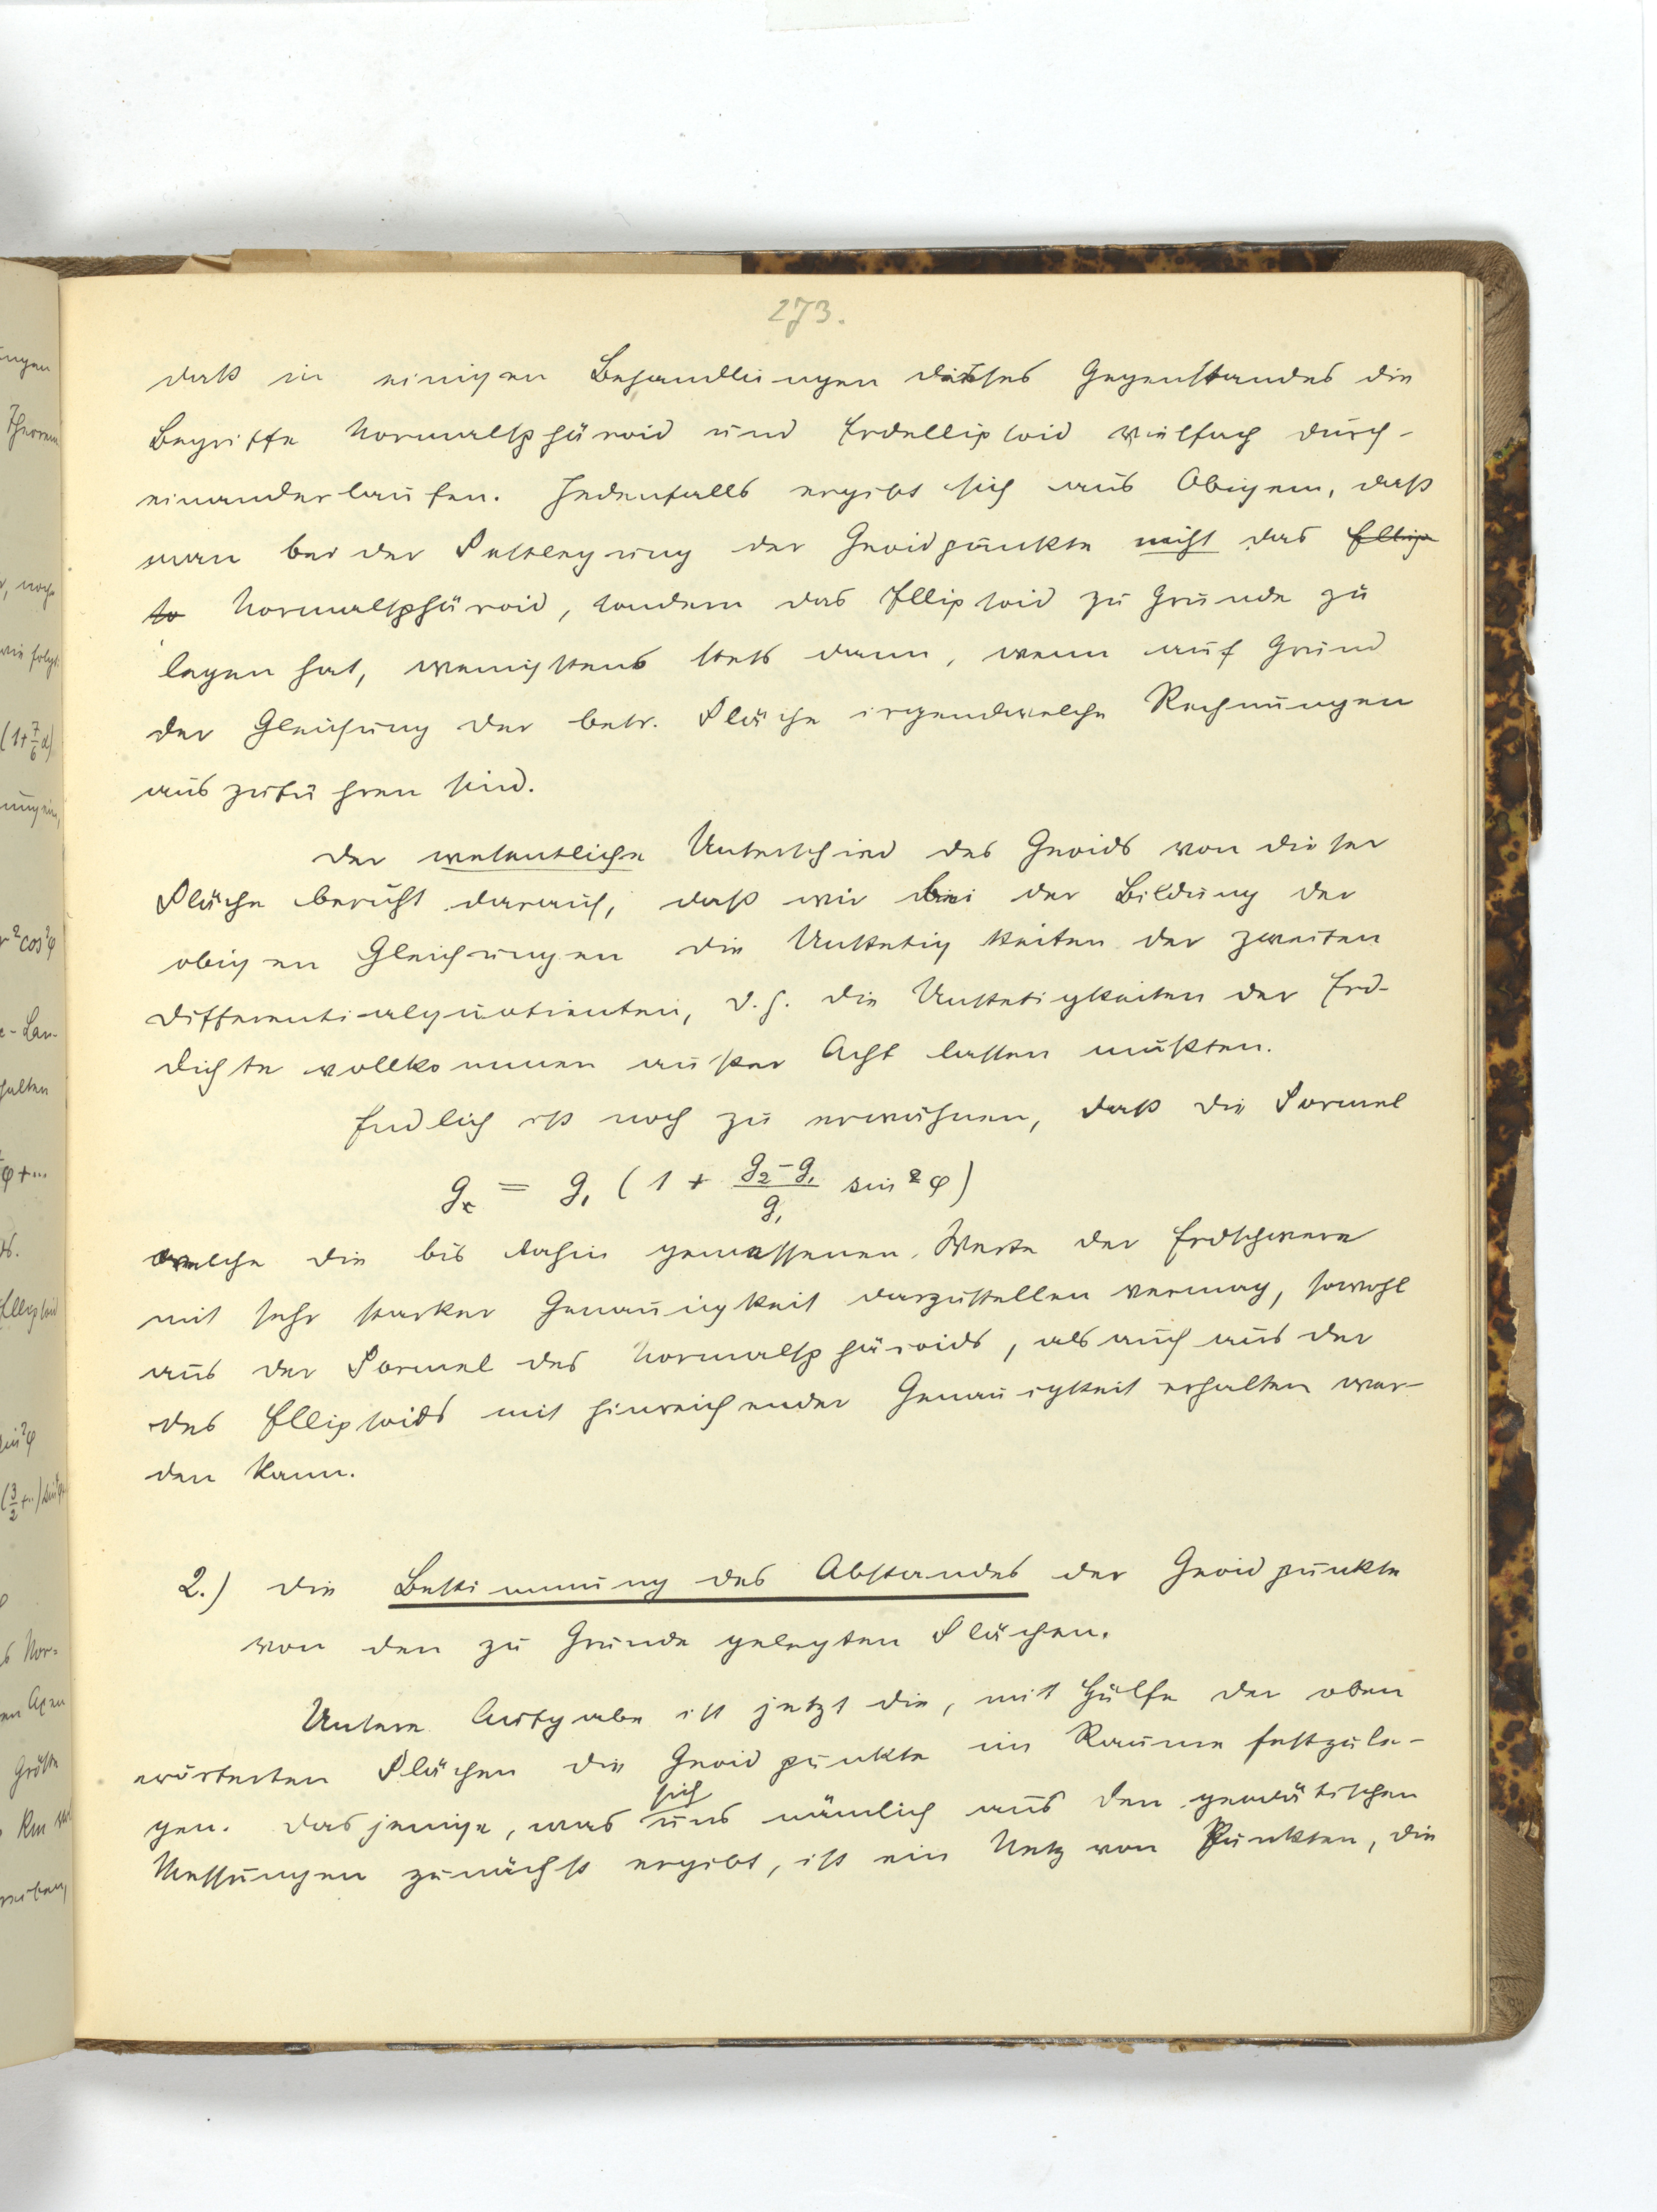 273.
daß in einigen Behandlungen dieses Gegenstandes die
Begriffe Normalsphäroid und Erdellipsoid vielfach durch-
einanderlaufen. Jedenfalls ergibt sich aus Obigem, daß
man bei der Festlegung der Geoidpunkte nicht das Ellip
so Normalsphäroid, sondern das Ellipsoid zu Grunde zu
legen hat, wenigstens stets dann, wenn auf Grund
der Gleichung der betr. Fläche irgendwelche Rechnungen
auszuführen sind.
Der wesentliche Unterschied des Geoids von dieser
Fläche beruht darauf, daß wir bei der Bildung der
obigen Gleichungen die Unstetigkeiten der zweiten
Differentialquotienten, d.h. die Unstetigkeiten der Erd-
dichte vollkommen außer Acht lassen mußten.
Endlich ist noch zu erwähnen, daß die Formel
g = g₁ (1 + (g₂-g₁)/g₁ sin²φ)
welche die bis dahin gemessenen Werte der Erdschwere
mit sehr starker Genauigkeit darzustellen vermag, sowohl
aus der Formel des Normalsphäroids, als auch aus der
des Ellipsoids mit hinreichender Genauigkeit erhalten wer-
den kann.
2.) Die Bestimmung des Abstandes der Geoidpunkte
von den zu Grunde gelegten Flächen.
Unsere Aufgabe ist jetzt die, mit Hülfe der oben
erörterten Flächen die Geoidpunkte im Raume festzule-
gen. Dasjenige, was sich uns nämlich aus den geodätischen
Messungen zunächst ergibt, ist ein Netz von Punkten, die